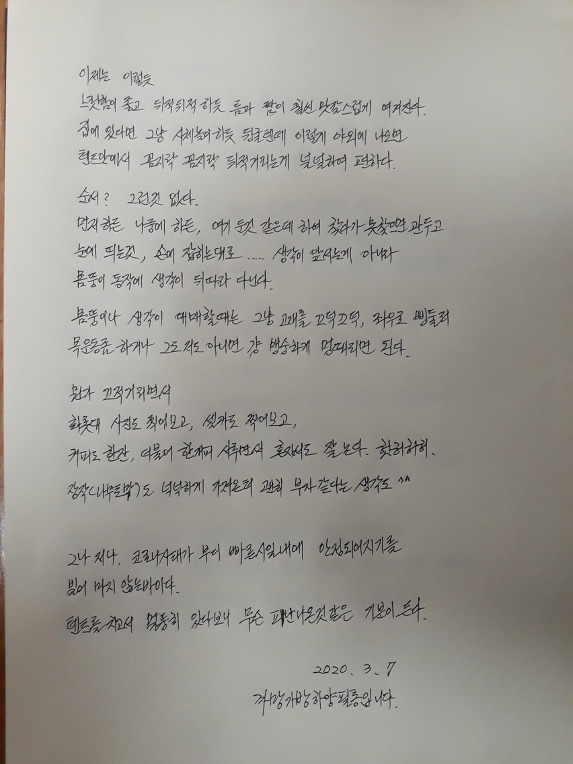 이제는 이렇듯
느릿함이 좋고 뒤적뒤적 하듯 틈과 쨈이 훨씬 맛깔스럽게 여겨진다.
집에 있다면 그냥 시체놀이하듯 뒹굴텐데 이렇게 야외에 나오면
텐트안에서 꼼지락 꼼지락 뒤적거리는게 널널하여 편하다.
순서? 그런것 없다.
먼저하든 나중에 하든, 여기 둔것 같은데 하여 찾다가 못찾으면 관두고
눈에 띄는것, 손에 잡히는대로 .... 생각이 앞서는게 아니라
몸뚱이 동작에 생각이 뒤따라 다닌다.
몸뚱이나 생각이 대매할때는 그냥 고개를 끄덕끄덕, 좌우로 삥둘러
목운동을 하거나 그도저도 아니면 걍 뻥숭하게 멍때리면 된다.
뭔가 끄적거리면서
화롯대 사진도 찍어보고, 셀카도 찍어보고,
커피도 한잔, 더불어 한개피 사루면서 혼자서도 잘 논다. 핫허하히.
장작(나무토막)도 넉넉하게 가져온터 괜히 부자 같다는 생각도 ^^
그나 저나, 코로나사태가 부디 빠른시일내에 안정되어지기를
빌어 마지 않는바이다.
텐트를 치고서 멍통히 있다보니 무슨 피난나온것같은 기분이 든다.
2020. 3. 7